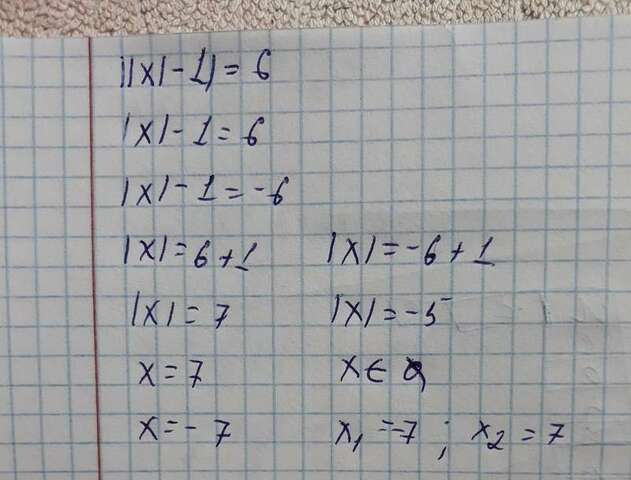 ||x|-1|=6
|x|-1=6
|x|-1=-6
|x|=6+1 |x|=-6+1
|x|=7 |x|=-5
x=7 x∈
x=-7 x₁=-7; x₂=7